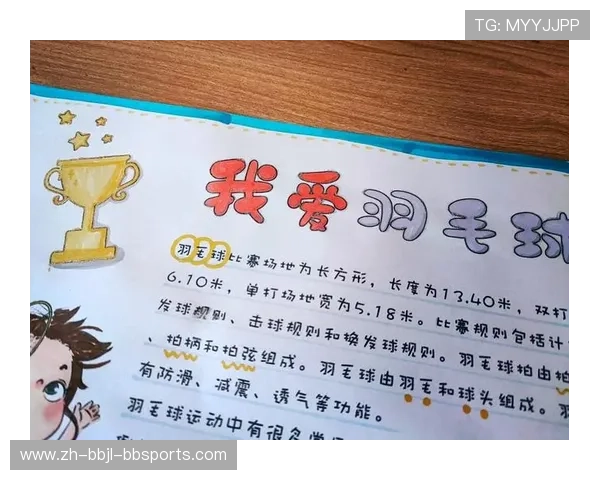 TG: MYYJJPP
我爱羽毛球
羽毛球比赛场地为长方形，长度为13.40米，双打
6.10米，单打场地宽为5.18米。比赛规则包括计
发球规则、击球规则和换发球规则。羽毛球拍由拍
、拍柄和拍弦组成。羽毛球由羽毛和球头组成。羽
有防滑、减震、透气等功能。
羽毛球运动中有很多
www.zh-bbjl-bbsports.com